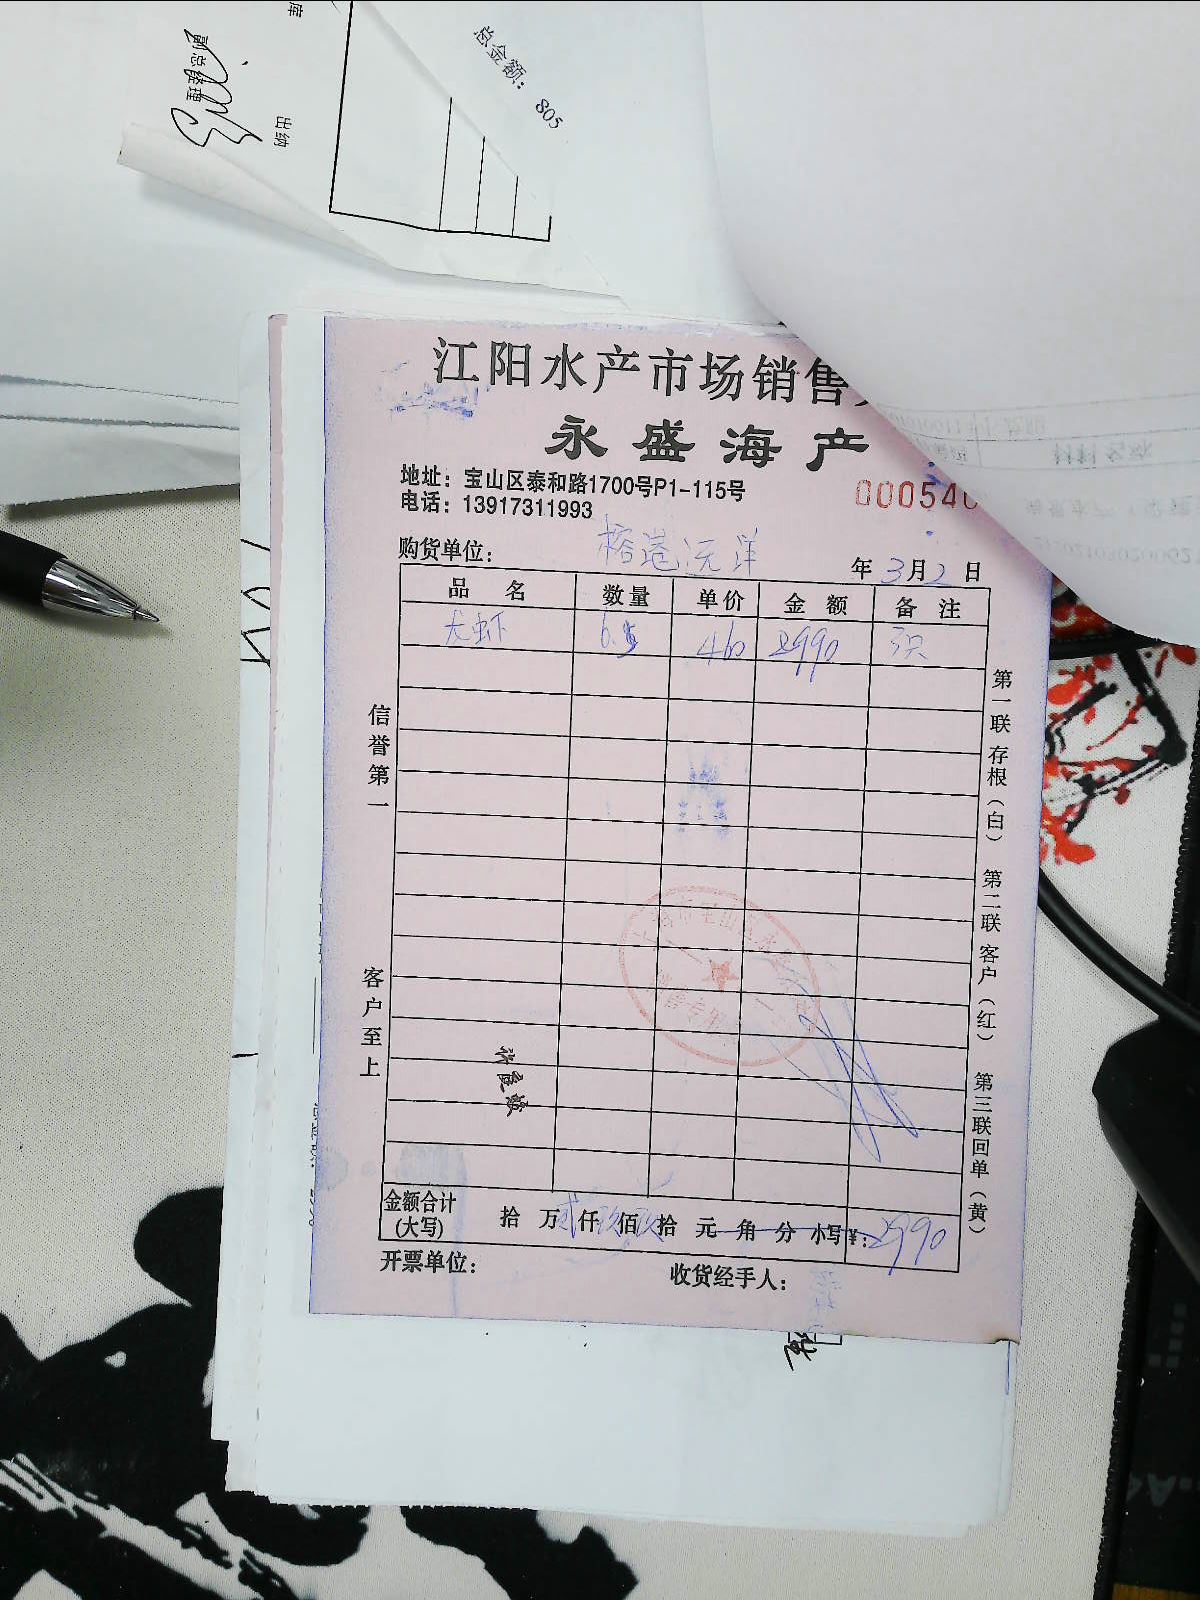 库
副总经理
出纳
总金额：805
江阳水产市场销售
永盛海产
地址：宝山区泰和路1700号P1-115号
电话：13917311993
000540
购货单位：榕港远洋
年3月2日
品名 数量 单价 金额 备注
龙虾 6.5 460 2990 3只
信誉第一
客户至上
第一联存根（白） 第二联客户（红） 第三联回单（黄）
金额合计（大写） 拾万贰仟玖佰玖拾元角分 小写¥：2990
开票单位：
收货经手人：